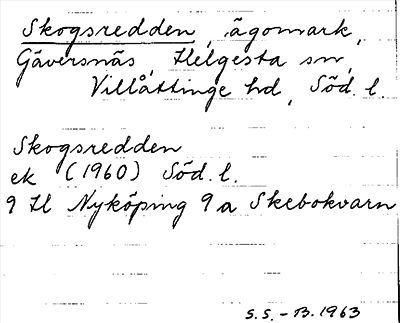 Skogsredden, ägomark,
Gäversnäs, Helgesta sn,
Villåttinge hd, Söd. l.
Skogsredden
ek (1960) Söd. l.
9 H Nyköping 9 a Skebokvarn
S.S. - B. 1963